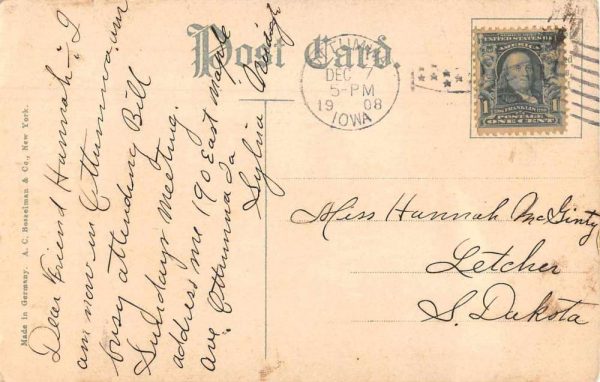 Post Card.
OTTUMWA
DEC 7
5-PM
1908
IOWA
SERIES 1902
UNITED STATES OF
AMERICA
1 1
FRANKLIN
POSTAGE
ONE CENT
Made in Germany. A. C. Bosselman & Co., New York.
Dear Friend Hannah:- I
am now in Ottumwa, am
busy attending Bill
Sundays Meeting.
address me 190 East Maple
ave. Ottumwa Ia
Sylvia
Miss Hannah McGinty
Letcher
S. Dakota